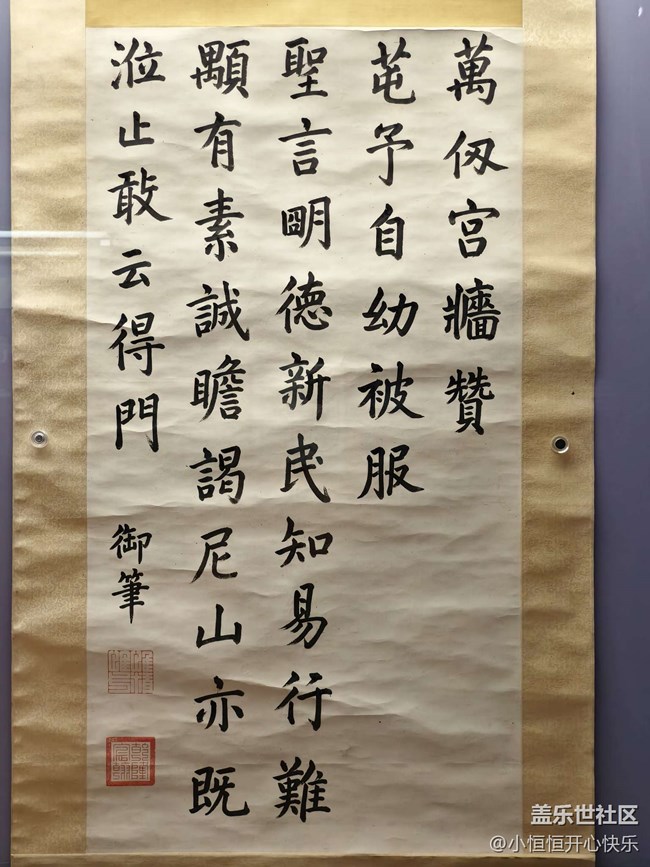 萬仭宮牆贊
芚予自幼被服
聖言眀德新民知易行難
顒有素誠瞻謁尼山亦既
涖止敢云得門
御筆
乾隆宸翰
盖乐世社区
@小恒恒开心快乐